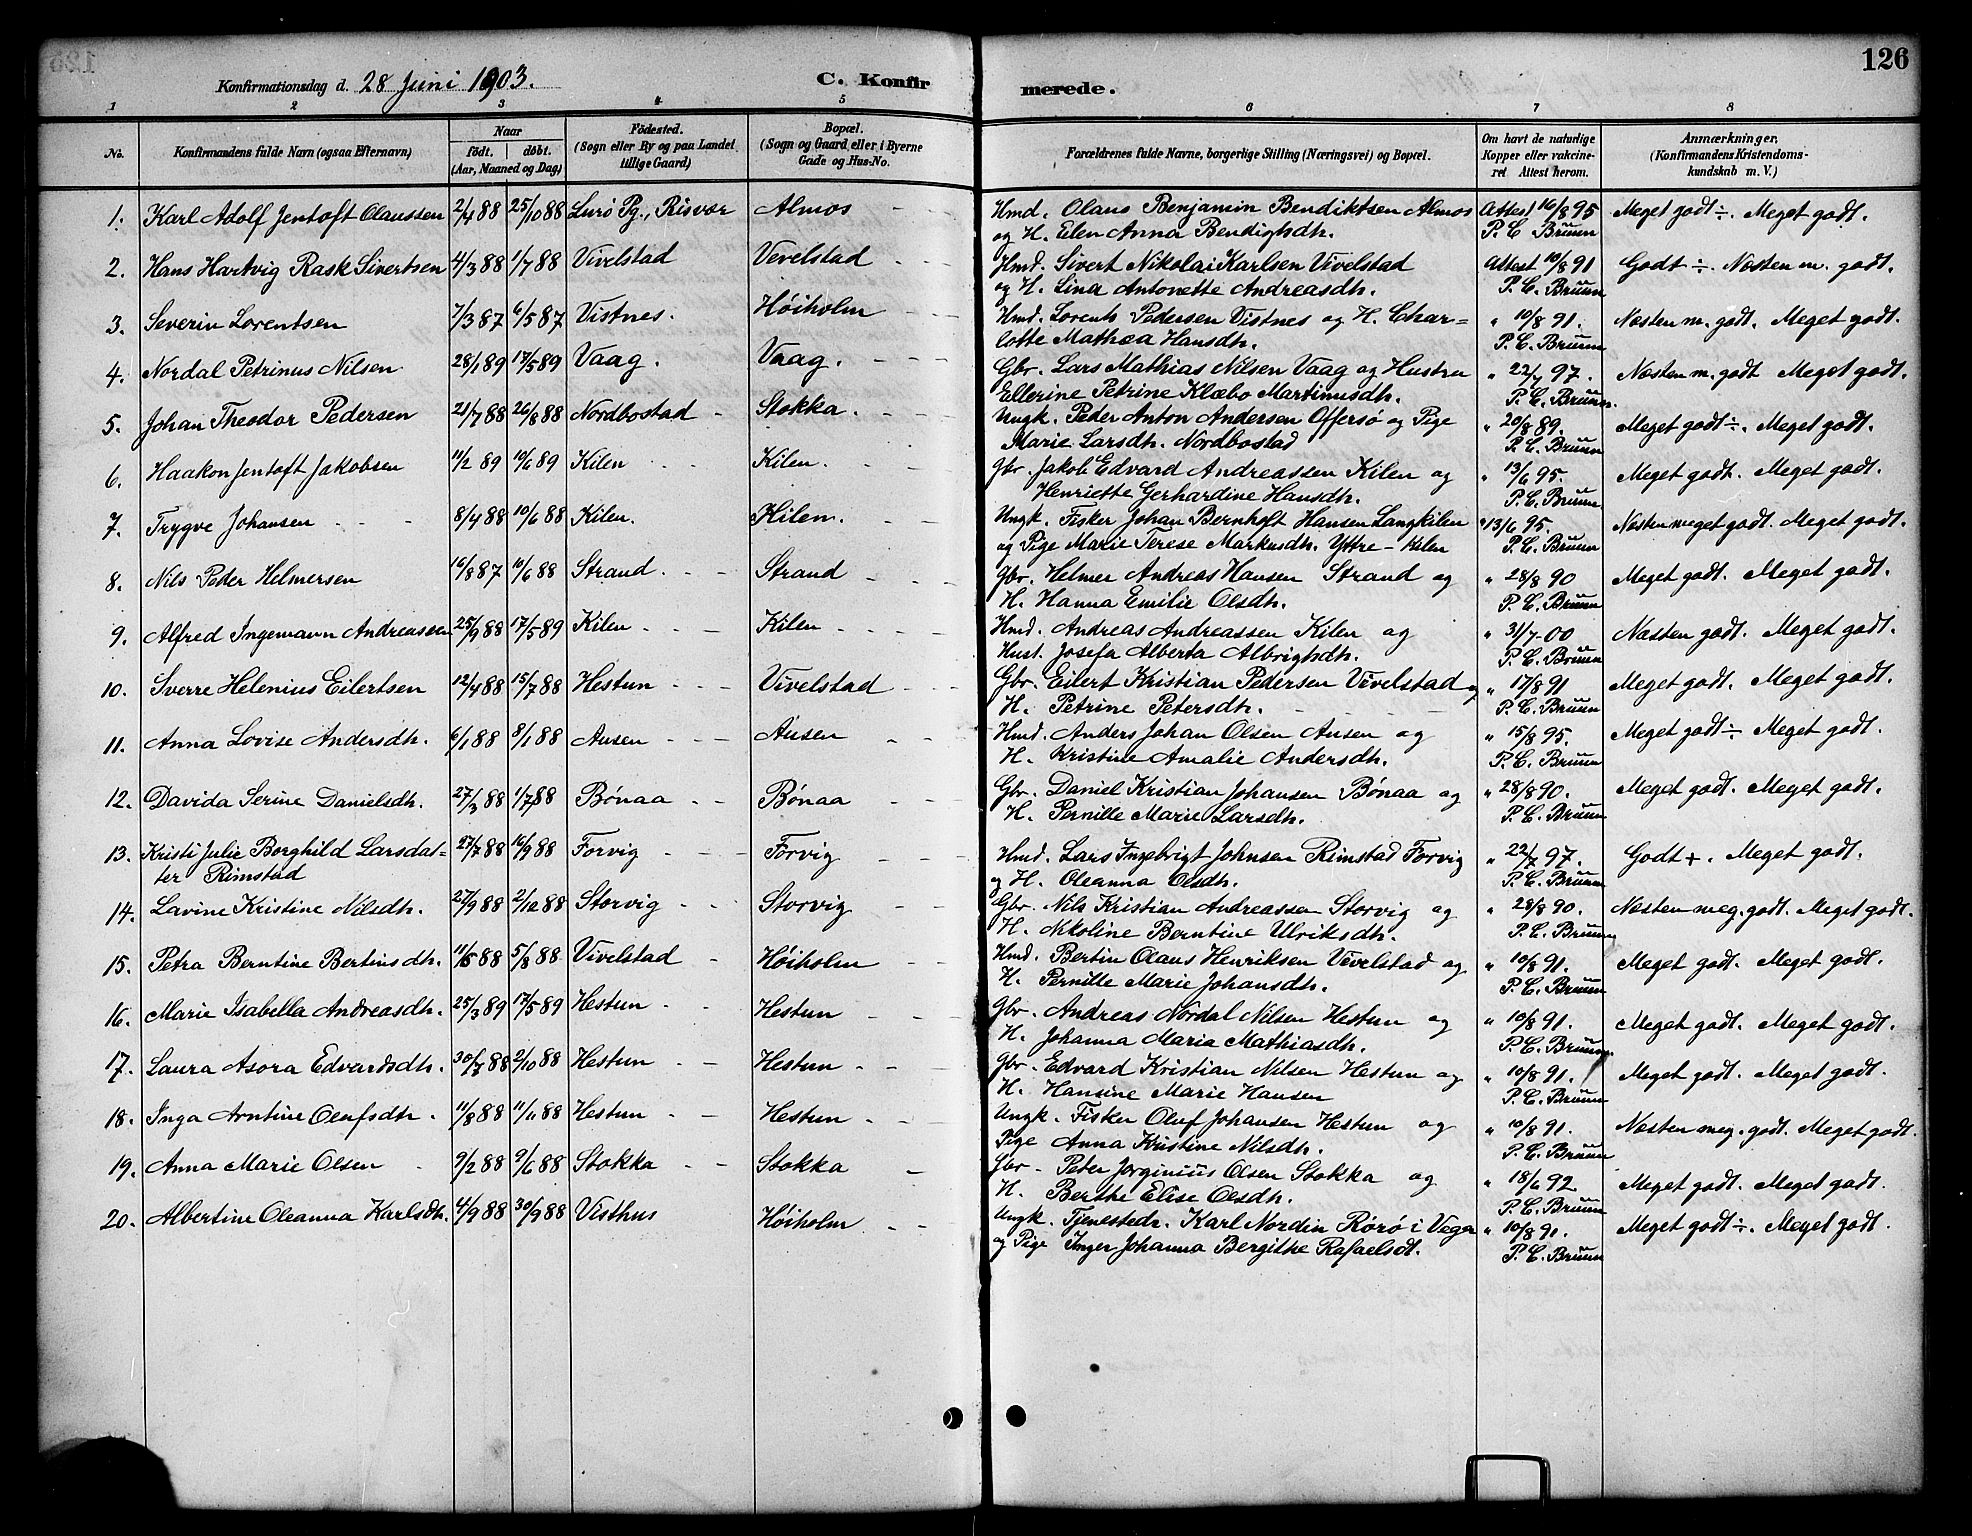 126
Konfirmationsdag d. 28 Juni 1903. C. Konfirmerede.
1 2 3 4 5 6 7 8
No. Konfirmandens fulde Navn (ogsaa Efternavn) Naar født. døbt. (Aar, Maaned og Dag) Fødested. (Sogn eller By og paa Landet tillige Gaard) Bopæl. (Sogn og Gaard, eller i Byerne Gade og Hus-No. Forældrenes fulde Navne, borgerlige Stilling (Næringsvei) og Bopæl. Om havt de naturlige Kopper eller vakcineret. Attest herom. Anmærkninger. (Konfirmandens Kristendomskundskab m. V.)
1. Karl Adolf Jentoft Olaussen 2/4 88 25/10 88 Lurø Pg., Risvær Almos Hmd. Olaus Benjamin Bendiktsen Almos Attest 16/8 95 Meget godt ÷. Meget godt.
og H. Elen Anna Bendigtsdh. P. C. Bruun
2. Hans Hartvig Rask Sivertsen 4/3 88 1/7 88 Vivelstad Vevelstad Hmd. Sivert Nikolai Karlsen Vivelstad Attest 10/8 91 Godt ÷. Næsten m. godt.
og H. Lina Antonette Andreasdh. P. C. Bruun
3. Severin Lorentsen 7/3 87 6/5 87 Vistnes. Høiholm Hmd. Lorents Pedersen Vistnes og H. Char= " 10/8 91. Næsten m. godt. Meget godt.
lotte Mathea Hansdh. P. C. Bruun
4. Nordal Petrinus Nilsen 28/1 89 17/5 89 Vaag. Vaag. Gbr. Lars Mathias Nilsen Vaag og Hustru " 22/7 97. Næsten m. godt Meget godt.
Ellerine Petrine Klæbo Martinusdh. P. C. Bruun.
5. Johan Theodor Pedersen 21/7 88 26/8 88 Nordbostad Stokka. Ungk. Peder Anton Andersen Offersø og Pige " 20/8 89. Meget godt ÷. Meget godt.
Marie Larsdh. Nordbostad P. C. Bruun
6. Haakon Jentoft Jakobsen 11/2 89 10/6 89 Kilen Kilen. Gbr. Jakob Edvard Andreassen Kilen og " 13/6 95. Meget godt. Meget godt.
Henriette Gerhardine Hansdh. P. C. Bruun
7. Trygve Johansen 8/4 88 10/6 88 Kilen. Kilen. Ungk. Fisker Johan Bernhoft Hansen Langkilen " 13/6 95. Næsten meget godt. Meget godt.
og Pige Marie Terese Markusdh. Yttre-Kilen P. C. Bruun
8. Nils Peder Helmersen 16/8 87 10/6 88 Strand. Strand Gbr. Helmer Andreas Hansen Strand og " 28/8 90 Meget godt. Meget godt.
H. Hanna Emilie Olsdh. P. C. Bruun
9. Alfred Ingemann Andreassen 25/9 88 17/5 89 Kilen Kilen. Hmd. Andreas Andreassen Kilen og " 31/7 00 Næsten godt. Meget godt.
Hust. Josefa Alberta Albrigtsdh. P. C. Bruun
10. Sverre Helenius Eilertsen 12/4 88 15/7 88 Hestun Vivelstad Gbr. Eilert Kristian Pedersen Vevelstad og " 17/8 91 Meget godt. Meget godt.
H. Petrine Petersdh. P. C. Bruun
11. Anna Lovise Andersdh. 6/1 88 8/1 88 Ausen Ausen Hmd. Anders Johan Olsen Ausen og " 15/8 95. Meget godt ÷ Meget godt.
H. Kristine Amalie Andersdh. P. C. Bruun
12. Davida Serine Danielsdh. 27/3 88 1/7 88 Bønaa Bønaa Gbr. Daniel Kristian Johansen Bønaa og " 28/8 90. Meget godt. Meget godt.
H. Pernille Marie Larsdh. P. C. Bruun
13. Kristi Julie Borghild Larsdat= 27/7 88 16/9 88 Forvig Forvig Hmd. Lars Ingebrigt Johnsen Rimstad Forvig " 22/7 97. Godt +. Meget godt.
ter Rimstad og H. Oleanna Olsdh. P. C. Bruun
14. Lavine Kristine Nilsdh. 27/9 88 2/10 88 Storvig Storvig Gbr. Nils Kristian Andreassen Storvig og " 28/8 90. Næsten meg. godt. Meget godt.
H. Nikoline Berntine Ulriksdh. P. C. Bruun
15. Petra Berntine Bertinsdh. 11/5 88 5/8 88 Vivelstad Høiholm Hmd. Bertin Olaus Henriksen Vevelstad og " 10/8 91. Meget godt. Meget godt.
H. Pernille Marie Johansdh. P. C. Bruun
16. Marie Isabella Andreasdh. 25/3 89 17/5 89 Hestun Hestun Gbr. Andreas Nordal Nilsen Hestun og " 10/8 91. Meget godt. Meget godt.
H. Johanna Maria Mathiasdh. P. C. Bruun.
17. Laura Asora Edvardsdh. 30/7 88 2/10 88 Hestun Hestun Gbr. Edvard Kristian Nilsen Hestun og " 10/8 91. Meget godt. Meget godt.
H. Hansine Marie Hansen P. C. Bruun
18. Inga Arntine Olufsdh. 11/8 88 11/11 88 Hestun Hestun Ungk. Fisker Oluf Johansen Hestun og " 10/8 91. Næsten meg. godt. Meget godt.
Pige Anna Kristine Nilsdh. P. C. Bruun
19. Anna Marie Olsen 9/2 88 9/6 88 Stokka Stokka Gbr. Peter Jørginius Olsen Stokka og " 18/6 92 Meget godt. Meget godt.
H. Berthe Elise Olsdh. P. C. Bruun
20. Albertine Oleanna Karlsdh. 4/9 88 30/9 88 Visthus Høiholm Ungk. Tjenestedr. Karl Nordin Rørø i Vega " 10/8 91. Meget godt ÷. Meget godt.
og Pige Inger Johanna Bergithe Rafaelsdt. P. C. Bruun